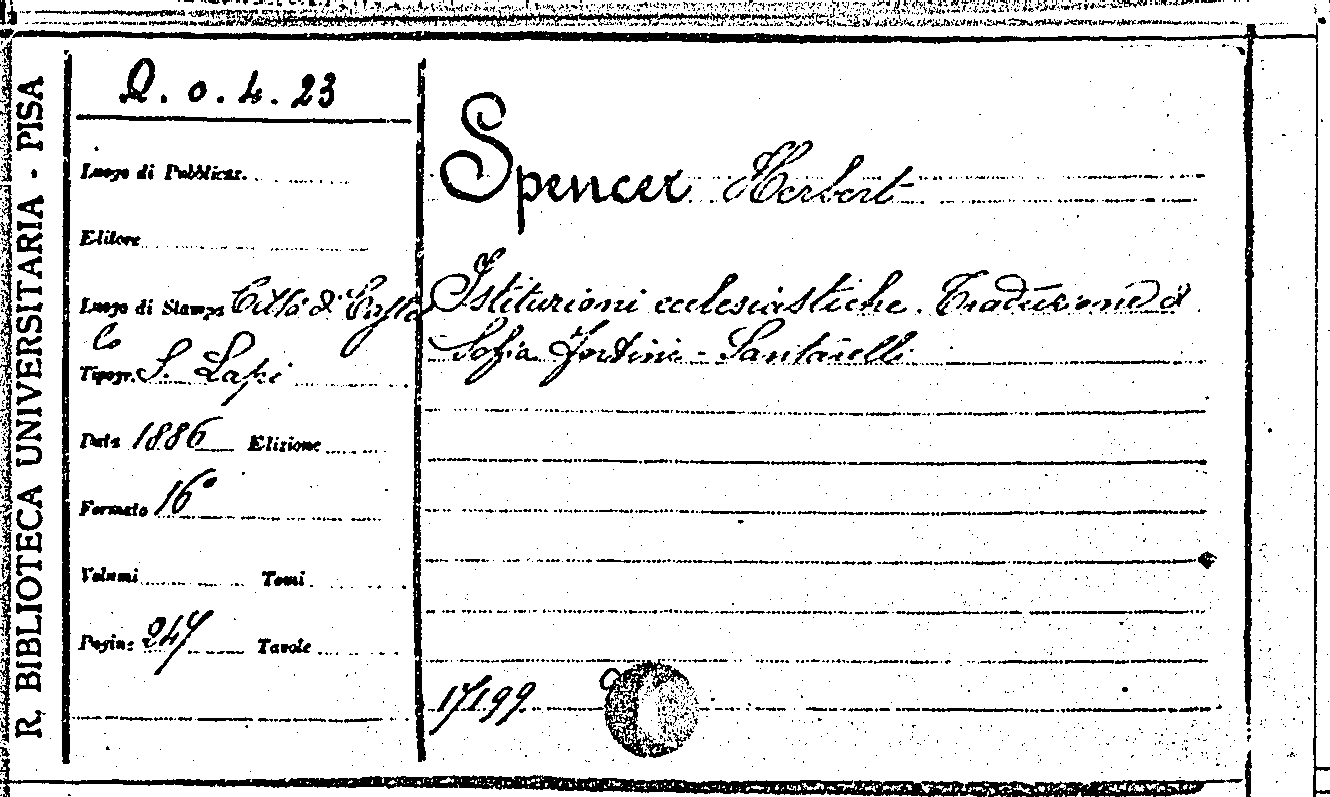 R. BIBLIOTECA UNIVERSITARIA - PISA
Q. o. 4. 23
Luogo di Pubblicaz.
Editore
Luogo di Stampa Città di Castel
lo
Tipogr. S. Lapi
Data 1886 Edizione
Formato 16°
Volumi Tomi
Pagine 247 Tavole
Spencer Herbert
Istituzioni ecclesiastiche. Traduzione di
Sofia Fortini-Santarelli
17199